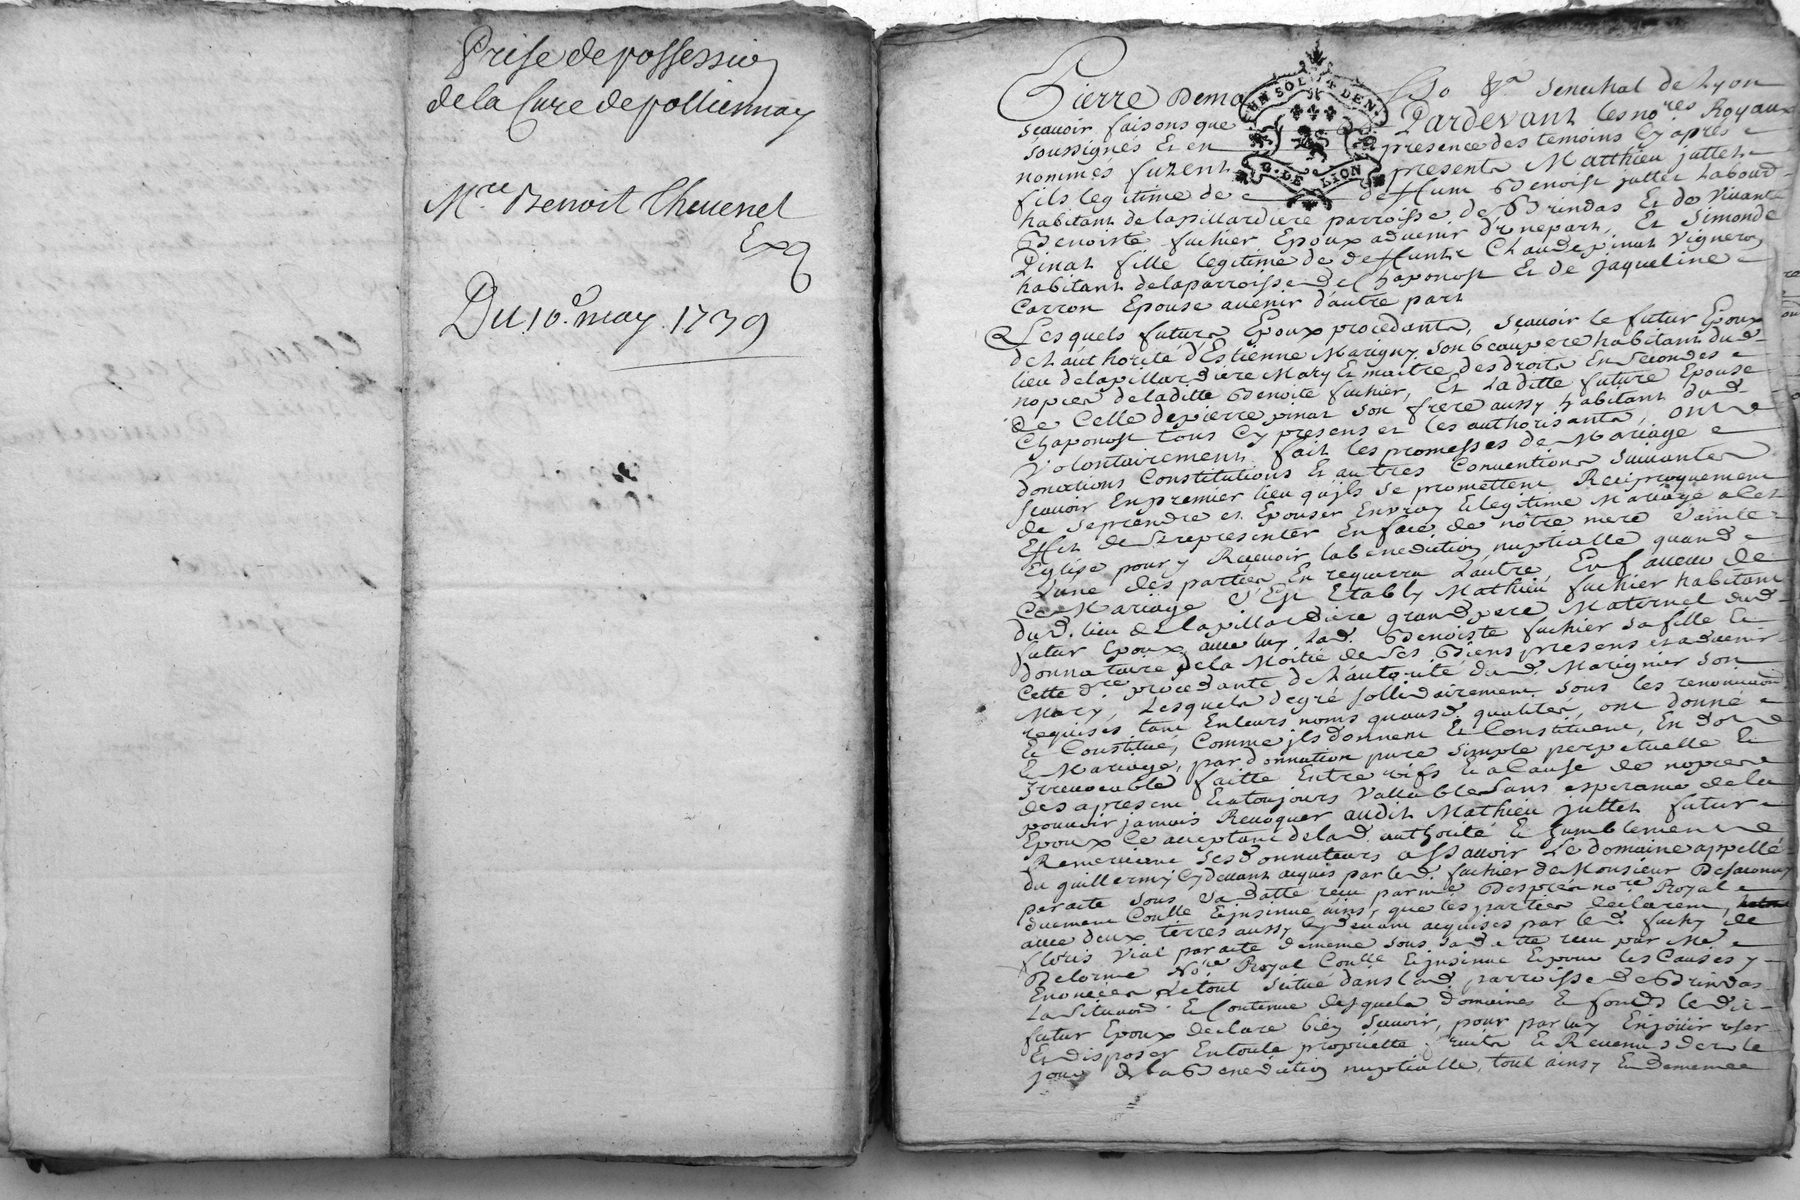 Prise de possession
de la Cure de pollionnay
Mre Benoit Thevenet
Exq
Du 10e may 1739
UN SOL DEN.
G. DE LION
Pierre Demo so &a Senechal de Lyon
Scavoir faisons que Pardevant les nores Royaux
soussignés Et en presence des temoins Cy apres
nommés furent presents Matthieu jullet
fils legitime de deffunt Benoist jullet Labour
habitant de lapillardiere parroisse de Brindas Et de Vivante
Benoiste fuchier Epoux advenir d'unepart, Et Simonde
Pinat fille legitime de deffunt Claude pinat Vigneron
habitant delaparroisse de Chaponost Et de jaqueline
Carron Epouse avenir d'autre part
Lesquels futurs Epoux procedants, Scavoir le futur Epoux
de L'authorité d'Estienne Marigny son beaupere habitant dud.
lieu de lapillardiere Mary Et maitre des droits En Secondes
nopces deladitte Benoite fuchier, Et Laditte future Epouse
de Celle depierre pinat son frere aussy habitant dud.
Chaponost tous Cy presens et les authorisants, ont
Volontairement fait les promesses de Mariage
donations Constitutions Et autres Conventions Suivantes
Scavoir Enpremier lieu qu'ils se promettent Reciproquement
de Seprendre et Epouser Envray Et legitime Mariage a Cet
Effet de Se representer En face de nôtre mere Sainte
Eglise pour y Recevoir labenediction nuptialle quand
L'une des parties En requerra L'autre, En faveur de
Ce Mariage s'Est Etably Mathieu fuchier habitant
dud. lieu de Lapillardiere grandpere Maternel dud.
futur Epoux, avec luy Lad. Benoiste fuchier sa fille Et
donnataire dela Moitié de Ses Biens presens et advenir
Cette dre procedante de L'autorité dud. Marignier son
Mary, Lesquels degré sollidairement sous les renonciaons
requises tant Enleurs noms quausd. qualites, ont donné
Et Constitué, Comme jls donnent Et Constituent, En dot
Et Mariage, par donnation pure Simple perpetuelle Et
jrrevocable faitte Entre vifs Et a Cause de nopces
des apresent Et atoujours Vallable Sans esperance dela
pouvoir jamais Revoquer audit Mathieu jullet futur
Epoux Ce acceptant delad. authorité Et humblement
Remerciant Ses donnateurs assavoir Le domaine appellé
du guillermy Cydevant acquis par led. fuchier de Monsieur
par acte sous sa datte reçu par me Despres nore Royal
duement Contlé Et jnsinué ainsy que les parties declarent,
avec deux terres aussy Cydevant acquises par led. fuchy de
floris Vial par acte demême sous sa datte recu par Me
Delorme Nore Royal Contlé Et jnsinué Et pour les Causes y
Enoncées Letout Situé dans lad. parroisse de Brindas
La Situaon Et Contenue desquels domaines Et fonds le dit
futur Epoux declare bien Scavoir, pour parluy En joüir user
Et disposer Entoute proprieté fruits Et Revenus des le
jour de la Benediction nuptialle, tout ainsy Et dememe